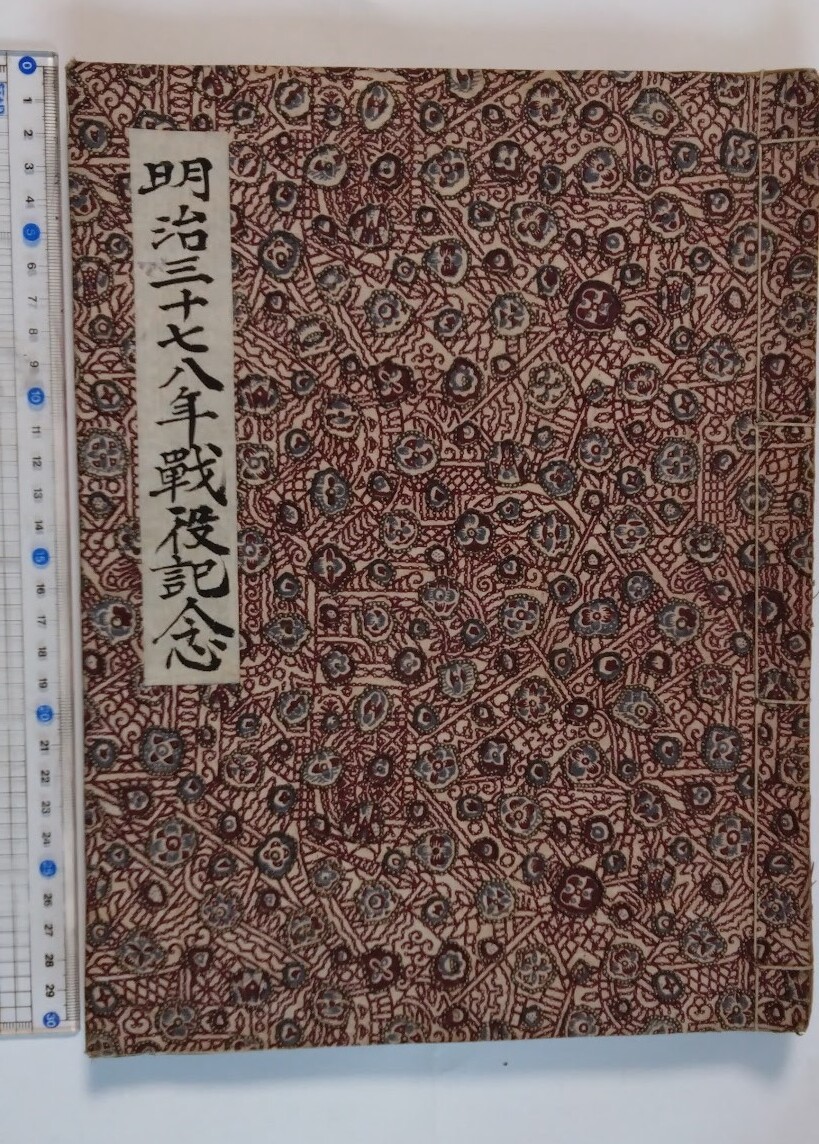 明治三十七八年戰役記念
0
1
2
3
4
5
6
7
8
9
10
11
12
13
14
15
16
17
18
19
20
21
22
23
24
25
26
27
28
29
30